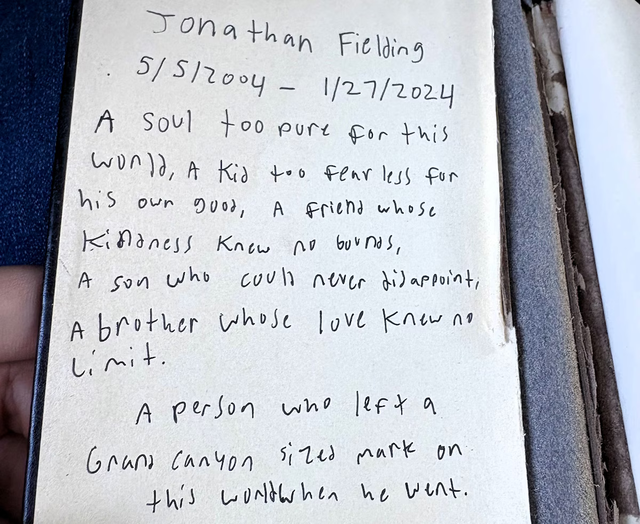 Jonathan Fielding
5/5/2004 - 1/27/2024
A soul too pure for this
world, A kid too fearless for
his own good, A friend whose
kindness knew no bounds,
A son who could never disappoint,
A brother whose love knew no
limit.
A person who left a
Grand Canyon sized mark on
this world when he went.